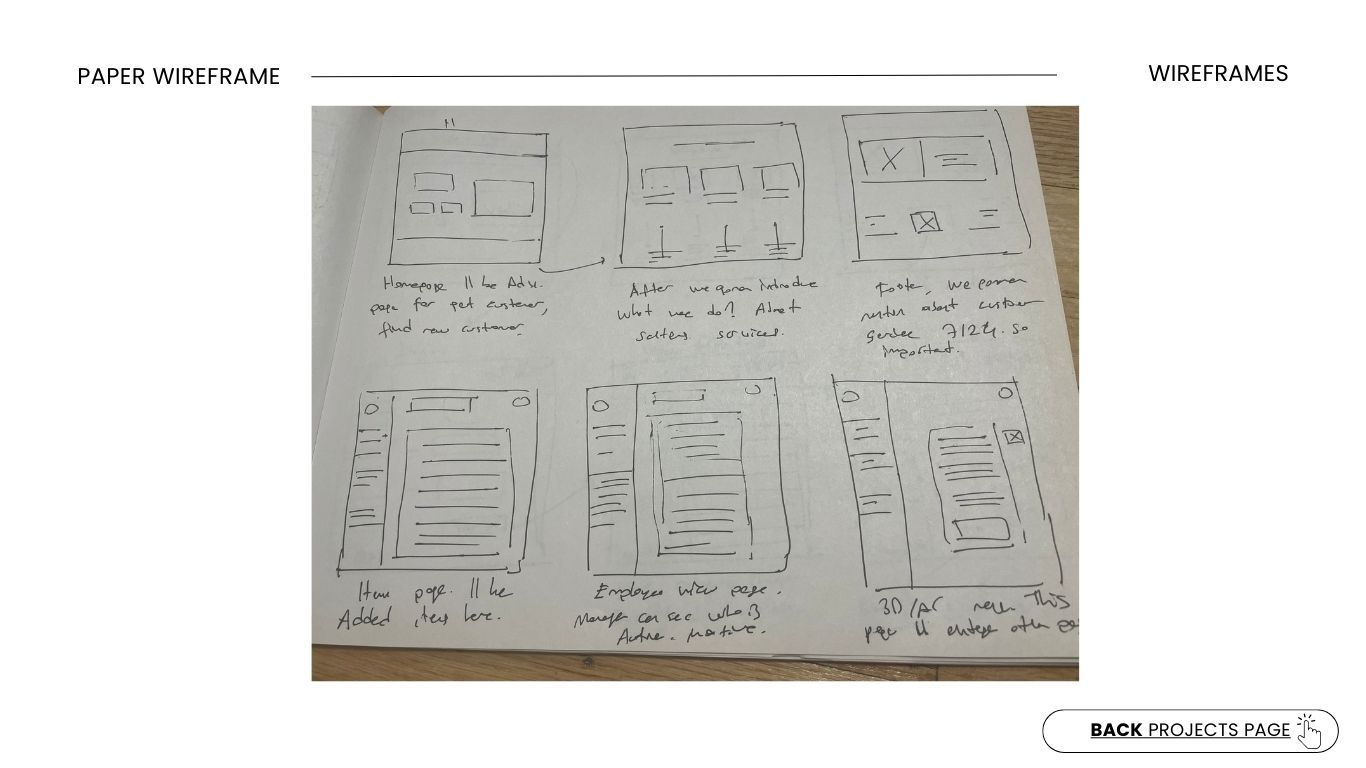 PAPER WIREFRAME
WIREFRAMES
Homepage ll be Adv.
page for get customer,
find new customer.
After we gonna introduce
what we do? About
services.
Footer, we gonna
about customer
7/24. so
important.
Item page. ll be
Added items here.
Employee view page.
Manager can see who is
Active.
3D/AR This
page ll other
BACK PROJECTS PAGE